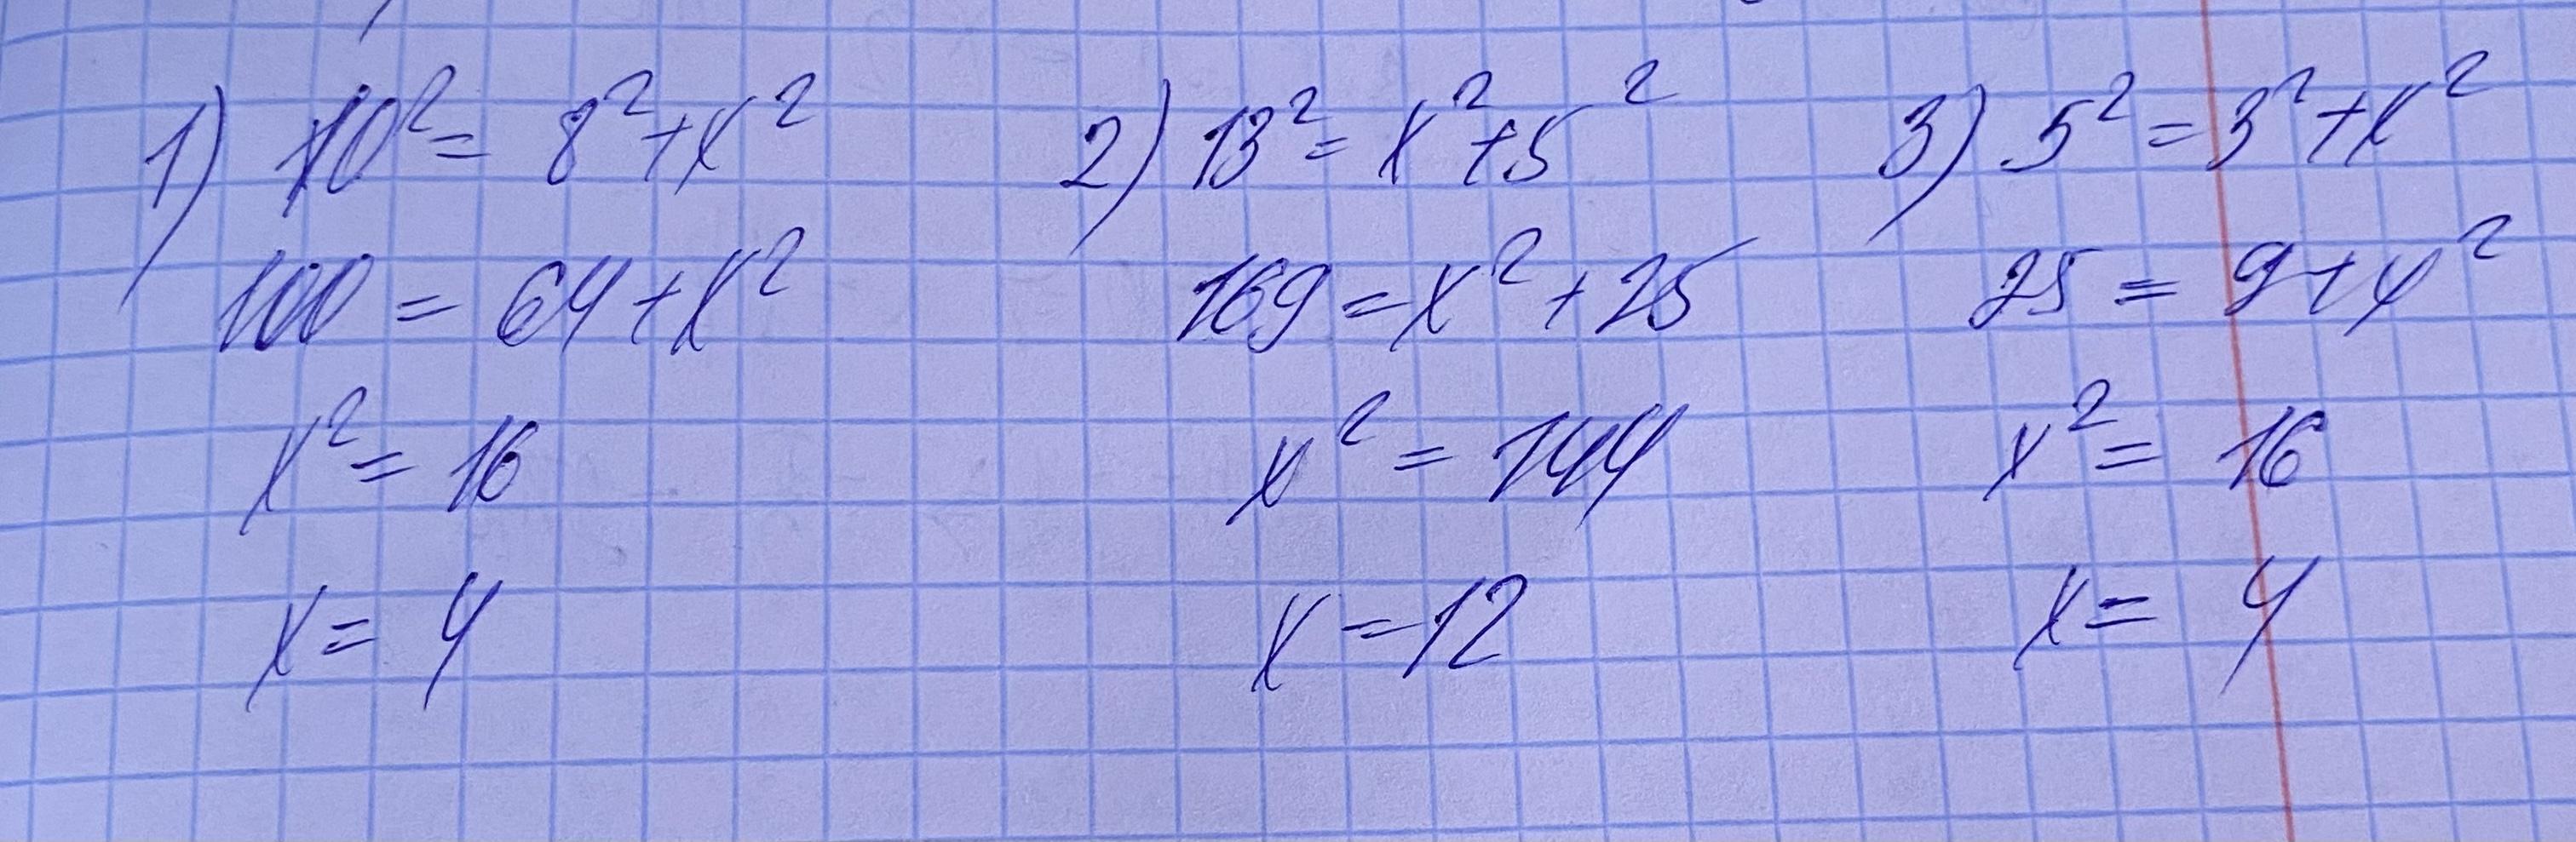 1) 10² = 8² + x²
100 = 64 + x²
x² = 16
x = 4
2) 13² = x² + 5²
169 = x² + 25
x² = 144
x = 12
3) 5² = 3² + x²
25 = 9 + x²
x² = 16
x = 4